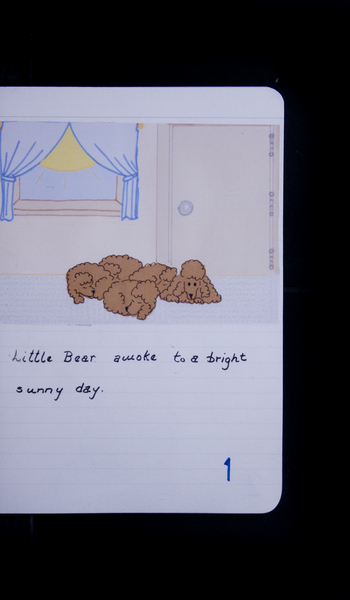 Little Bear awoke to a bright
sunny day.
1